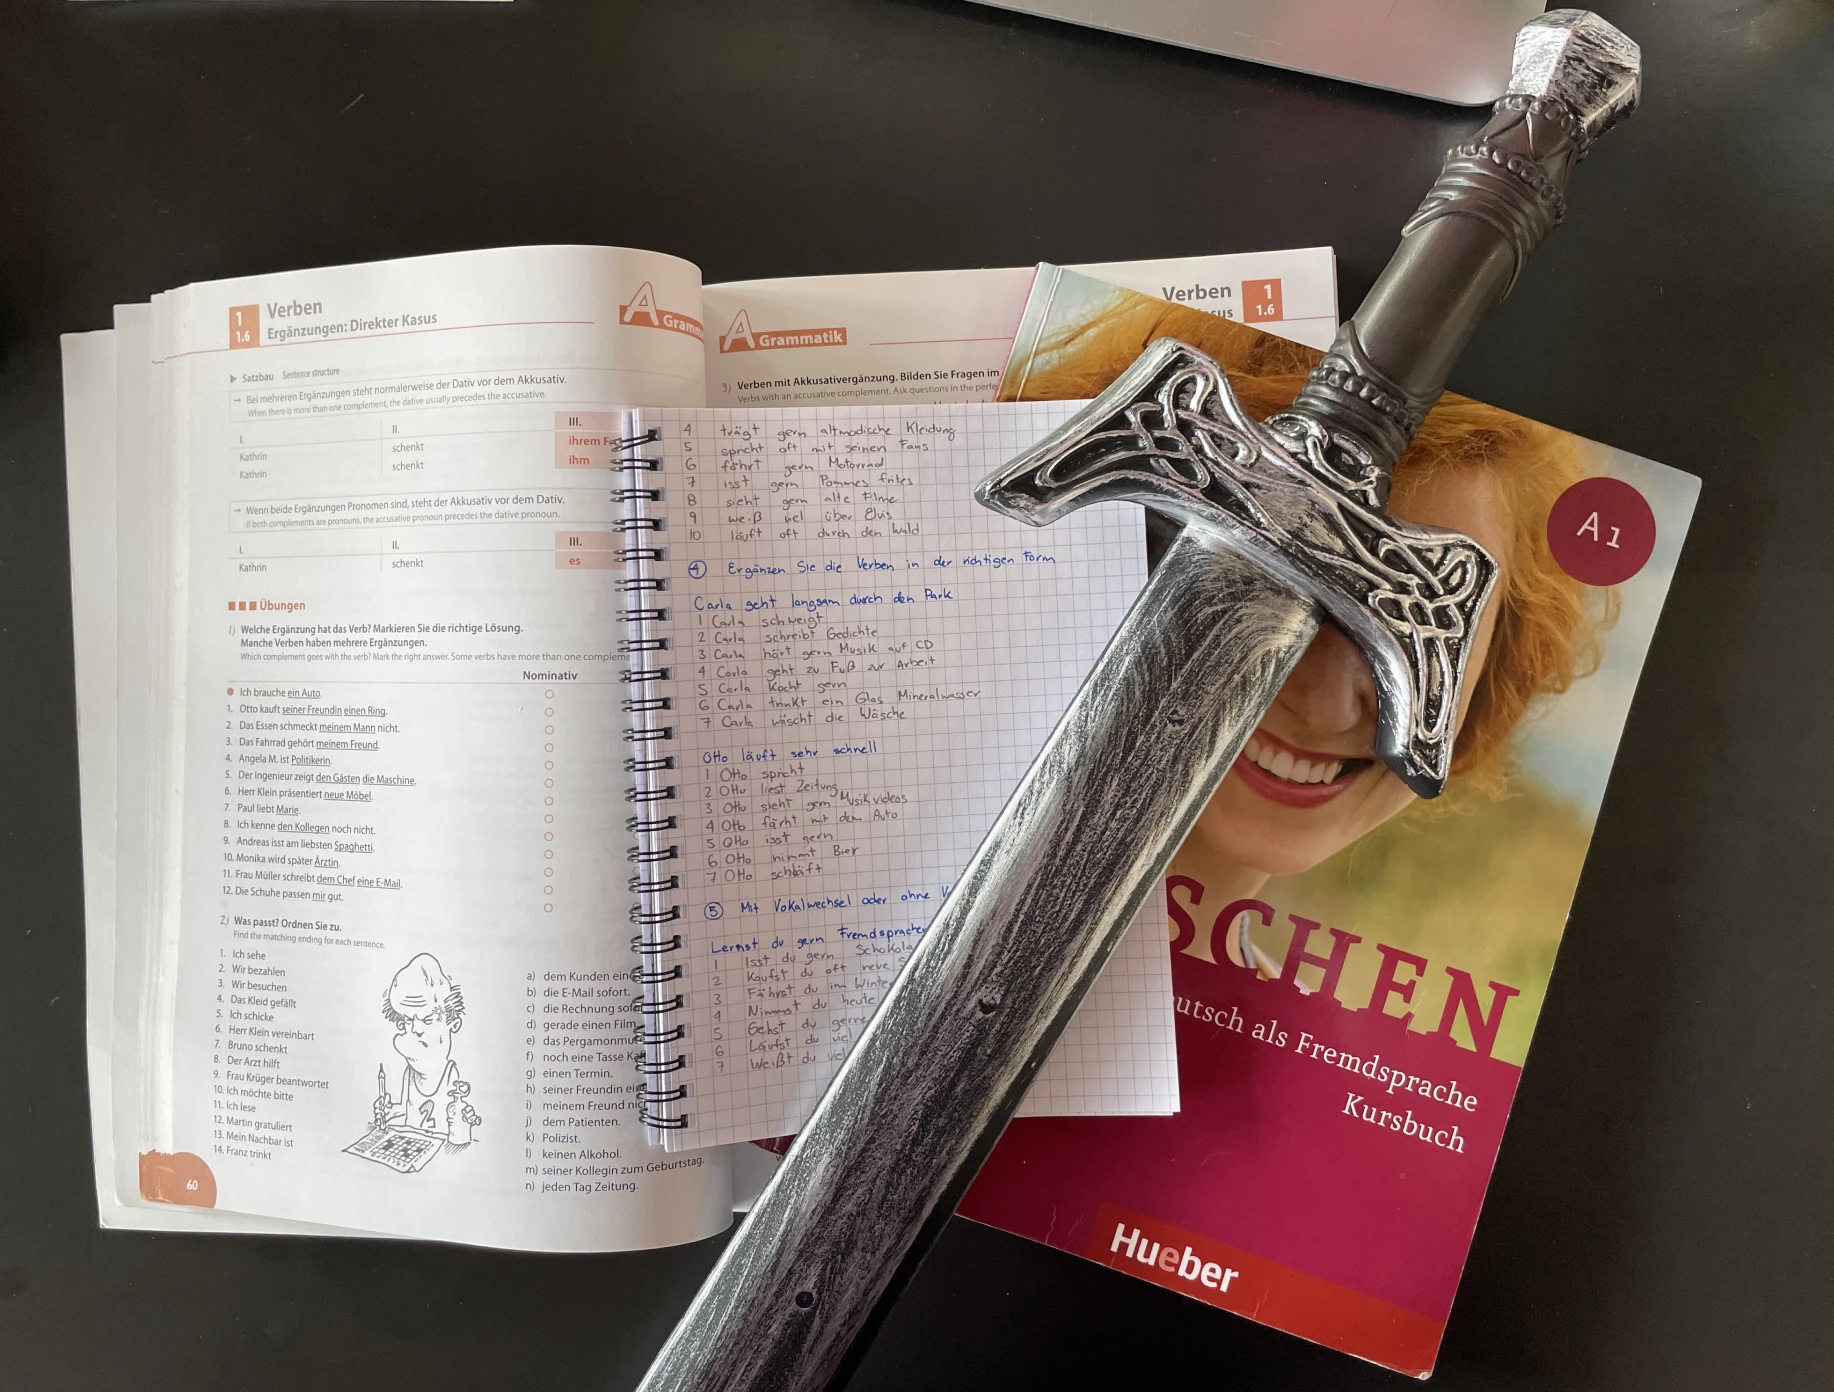 1
1.6
Verben
Ergänzungen: Direkter Kasus
A Gramm
▶ Satzbau Sentence structure
→ Bei mehreren Ergänzungen steht normalerweise der Dativ vor dem Akkusativ.
When there is more than one complement, the dative usually precedes the accusative.
I. II. III.
Kathrin schenkt ihrem
Kathrin schenkt ihm
→ Wenn beide Ergänzungen Pronomen sind, steht der Akkusativ vor dem Dativ.
If both complements are pronouns, the accusative pronoun precedes the dative pronoun.
I. II. III.
Kathrin schenkt es
Übungen
1) Welche Ergänzung hat das Verb? Markieren Sie die richtige Lösung.
Manche Verben haben mehrere Ergänzungen.
Which complement goes with the verb? Mark the right answer. Some verbs have more than one compleme
Nominativ
Ich brauche ein Auto.
1. Otto kauft seiner Freundin einen Ring.
2. Das Essen schmeckt meinem Mann nicht.
3. Das Fahrrad gehört meinem Freund.
4. Angela M. ist Politikerin.
5. Der Ingenieur zeigt den Gästen die Maschine.
6. Herr Klein präsentiert neue Möbel.
7. Paul liebt Marie.
8. Ich kenne den Kollegen noch nicht.
9. Andreas isst am liebsten Spaghetti.
10. Monika wird später Ärztin.
11. Frau Müller schreibt dem Chef eine E-Mail.
12. Die Schuhe passen mir gut.
2) Was passt? Ordnen Sie zu.
Find the matching ending for each sentence.
1. Ich sehe
2. Wir bezahlen
3. Wir besuchen
4. Das Kleid gefällt
5. Ich schicke
6. Herr Klein vereinbart
7. Bruno schenkt
8. Der Arzt hilft
9. Frau Krüger beantwortet
10. Ich möchte bitte
11. Ich lese
12. Martin gratuliert
13. Mein Nachbar ist
14. Franz trinkt
a) dem Kunden ein
b) die E-Mail sofort.
c) die Rechnung sofo
d) gerade einen Film
e) das Pergamonmu
f) noch eine Tasse Ka
g) einen Termin.
h) seiner Freundin ei
i) meinem Freund nic
j) dem Patienten.
k) Polizist.
l) keinen Alkohol.
m) seiner Kollegin zum Geburtstag.
n) jeden Tag Zeitung.
2
60
A Grammatik
Verben
1
1.6
sus
3) Verben mit Akkusativergänzung. Bilden Sie Fragen im
Verbs with an accusative complement. Ask questions in the perfe
4 trägt gern altmodische Kleidung
5 spricht oft mit seinen Fans
6 fährt gern Motorrad
7 isst gern Pommes frites
8 sieht gern alte Filme
9 weiß viel über Elvis
10 läuft oft durch den Wald
④ Ergänzen Sie die Verben in der richtigen Form
Carla geht langsam durch den Park
1 Carla schweigt
2 Carla schreibt Gedichte
3 Carla hört gern Musik auf CD
4 Carla geht zu Fuß zur Arbeit
5 Carla kocht gern
6 Carla trinkt ein Glas Mineralwasser
7 Carla wäscht die Wäsche
Otto läuft sehr schnell
1 Otto spricht
2 Otto liest Zeitung
3 Otto sieht gern Musikvideos
4 Otto färht mit dem Auto
5 Otto isst gern
6 Otto nimmt Bier
7 Otto schläft
⑤ Mit Vokalwechsel oder ohne V
Lernst du gern Fremdsprachen
1 Isst du gern Schokola
2 Kaufst du oft neue S
3 Fährst du im Winter
4 Nimmst du heute
5 Gehst du gerne
6 Läufst du viel
7 Weißt du viel
A1
SCHEN
utsch als Fremdsprache
Kursbuch
Hueber